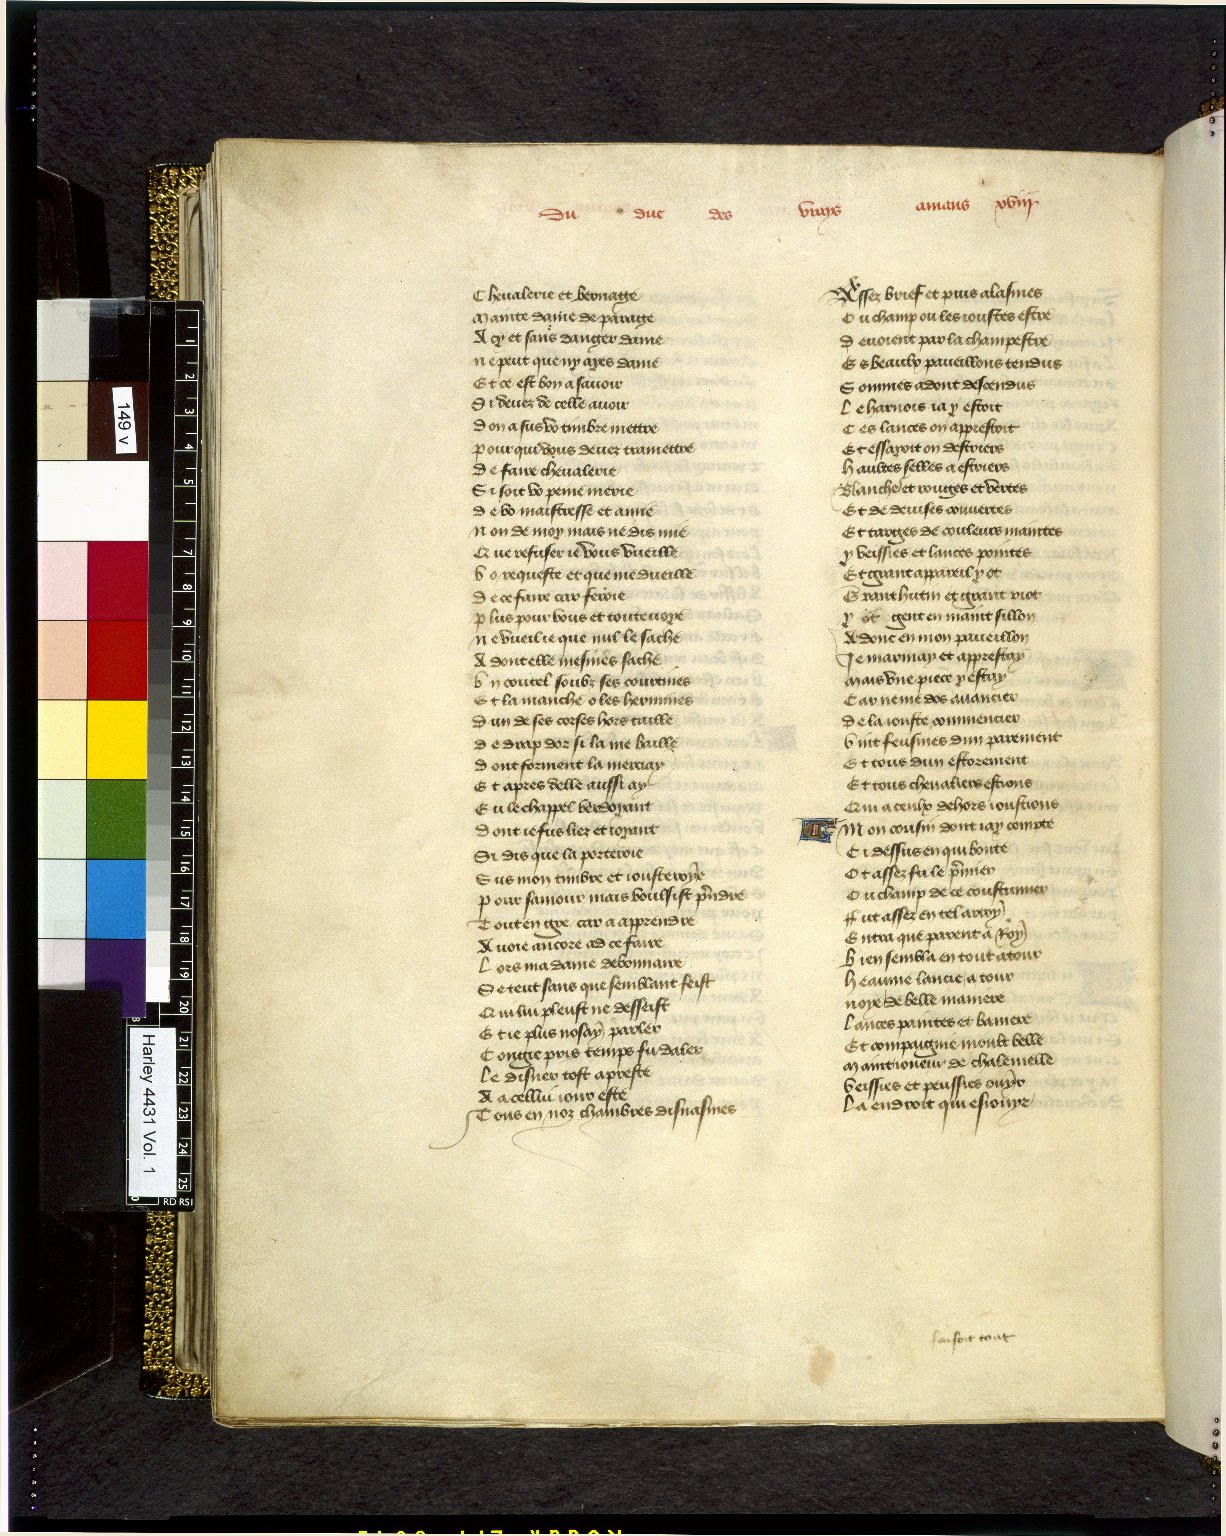 Du duc des vrays amans xviij
Cheualerie et bernage
Mainte dame de parage
A cy et sans danger dame
Ne peut que ny ayes dame
Et ce est bon a sauoir
Si deuez de celle auoir
Don a sus vo timbre mettre
Pour qui vous deuez tramettre
De faire cheualerie
Si soit vo peine merie
De vo maistresse et amie
Non de moy mais ne dis mie
Que refuser ie vous vueille
Vo requeste et que me dueille
De ce faire car feroie
Plus pour vous et toutevoye
Ne vueil ie que nul le sache
A dont elle mesmes sache
Un coutel soubz ses courtines
Et la manche o les hermines
Dun de ses corses hors taille
De drap dor si la me baille
Dont forment la merciay
Et apres delle aussi ay
Eu le chappel verdoyant
Dont ie fus liez et ioyant
Si dis que la porteroie
Sus mon timbre et iousteroye
Pour samour mais voulsist prendre
Tout en gre car a apprendre
Auoie ancore ad ce faire
Lors ma dame debonnaire
Se teut sans que semblant feist
Qui lui pleust ne desseist
Et ie plus nosay parler
Congie pris temps fu daler
Le disner tost apreste
A a cellui iour este
Tous en noz chambres disnasmes
Assez brief et puis alasmes
Ou champ ou les ioustes estre
Deuoient par la champestre
Es beaulx paueillons tendus
Sommes adont descendus
Le harnois ia y estoit
Ces lances on apprestoit
Et essayoit on destriers
Haultes selles a estriers
Blanches et rouges et vertes
Et de deuises couuertes
Et targes de couleurs maintes
Y veissies et lances pointes
Et grant appareil y ot
Grant hutin et grant riot
Y ot gent en maint sillon
Adont en mon paueillon
Je marmay et apprestay
Mais une piece y estay
Car ne me dos auancier
De la iouste commencier
Vint feusmes dun parement
Et tous dun estorement
Et tous cheualiers estions
Qui a ceulx dehors ioustions
Mon cousin dont iay compte
Ci dessus en qui bonte
Ot assez fu le premier
Ou champ de ce coustumier
Fut assez en tel arroy
Entra que parent a Roy
Bien sembla en tout atour
Heaume lancie a tour
Noye de belle maniere
Lances paintes et baniere
Et compaignie moult belle
Maint ioueur de chalemelle
Veissies et peussies ouyr
La endroit qui esiouyr
faisoit tout
149 v
Harley 4431 Vol. 1